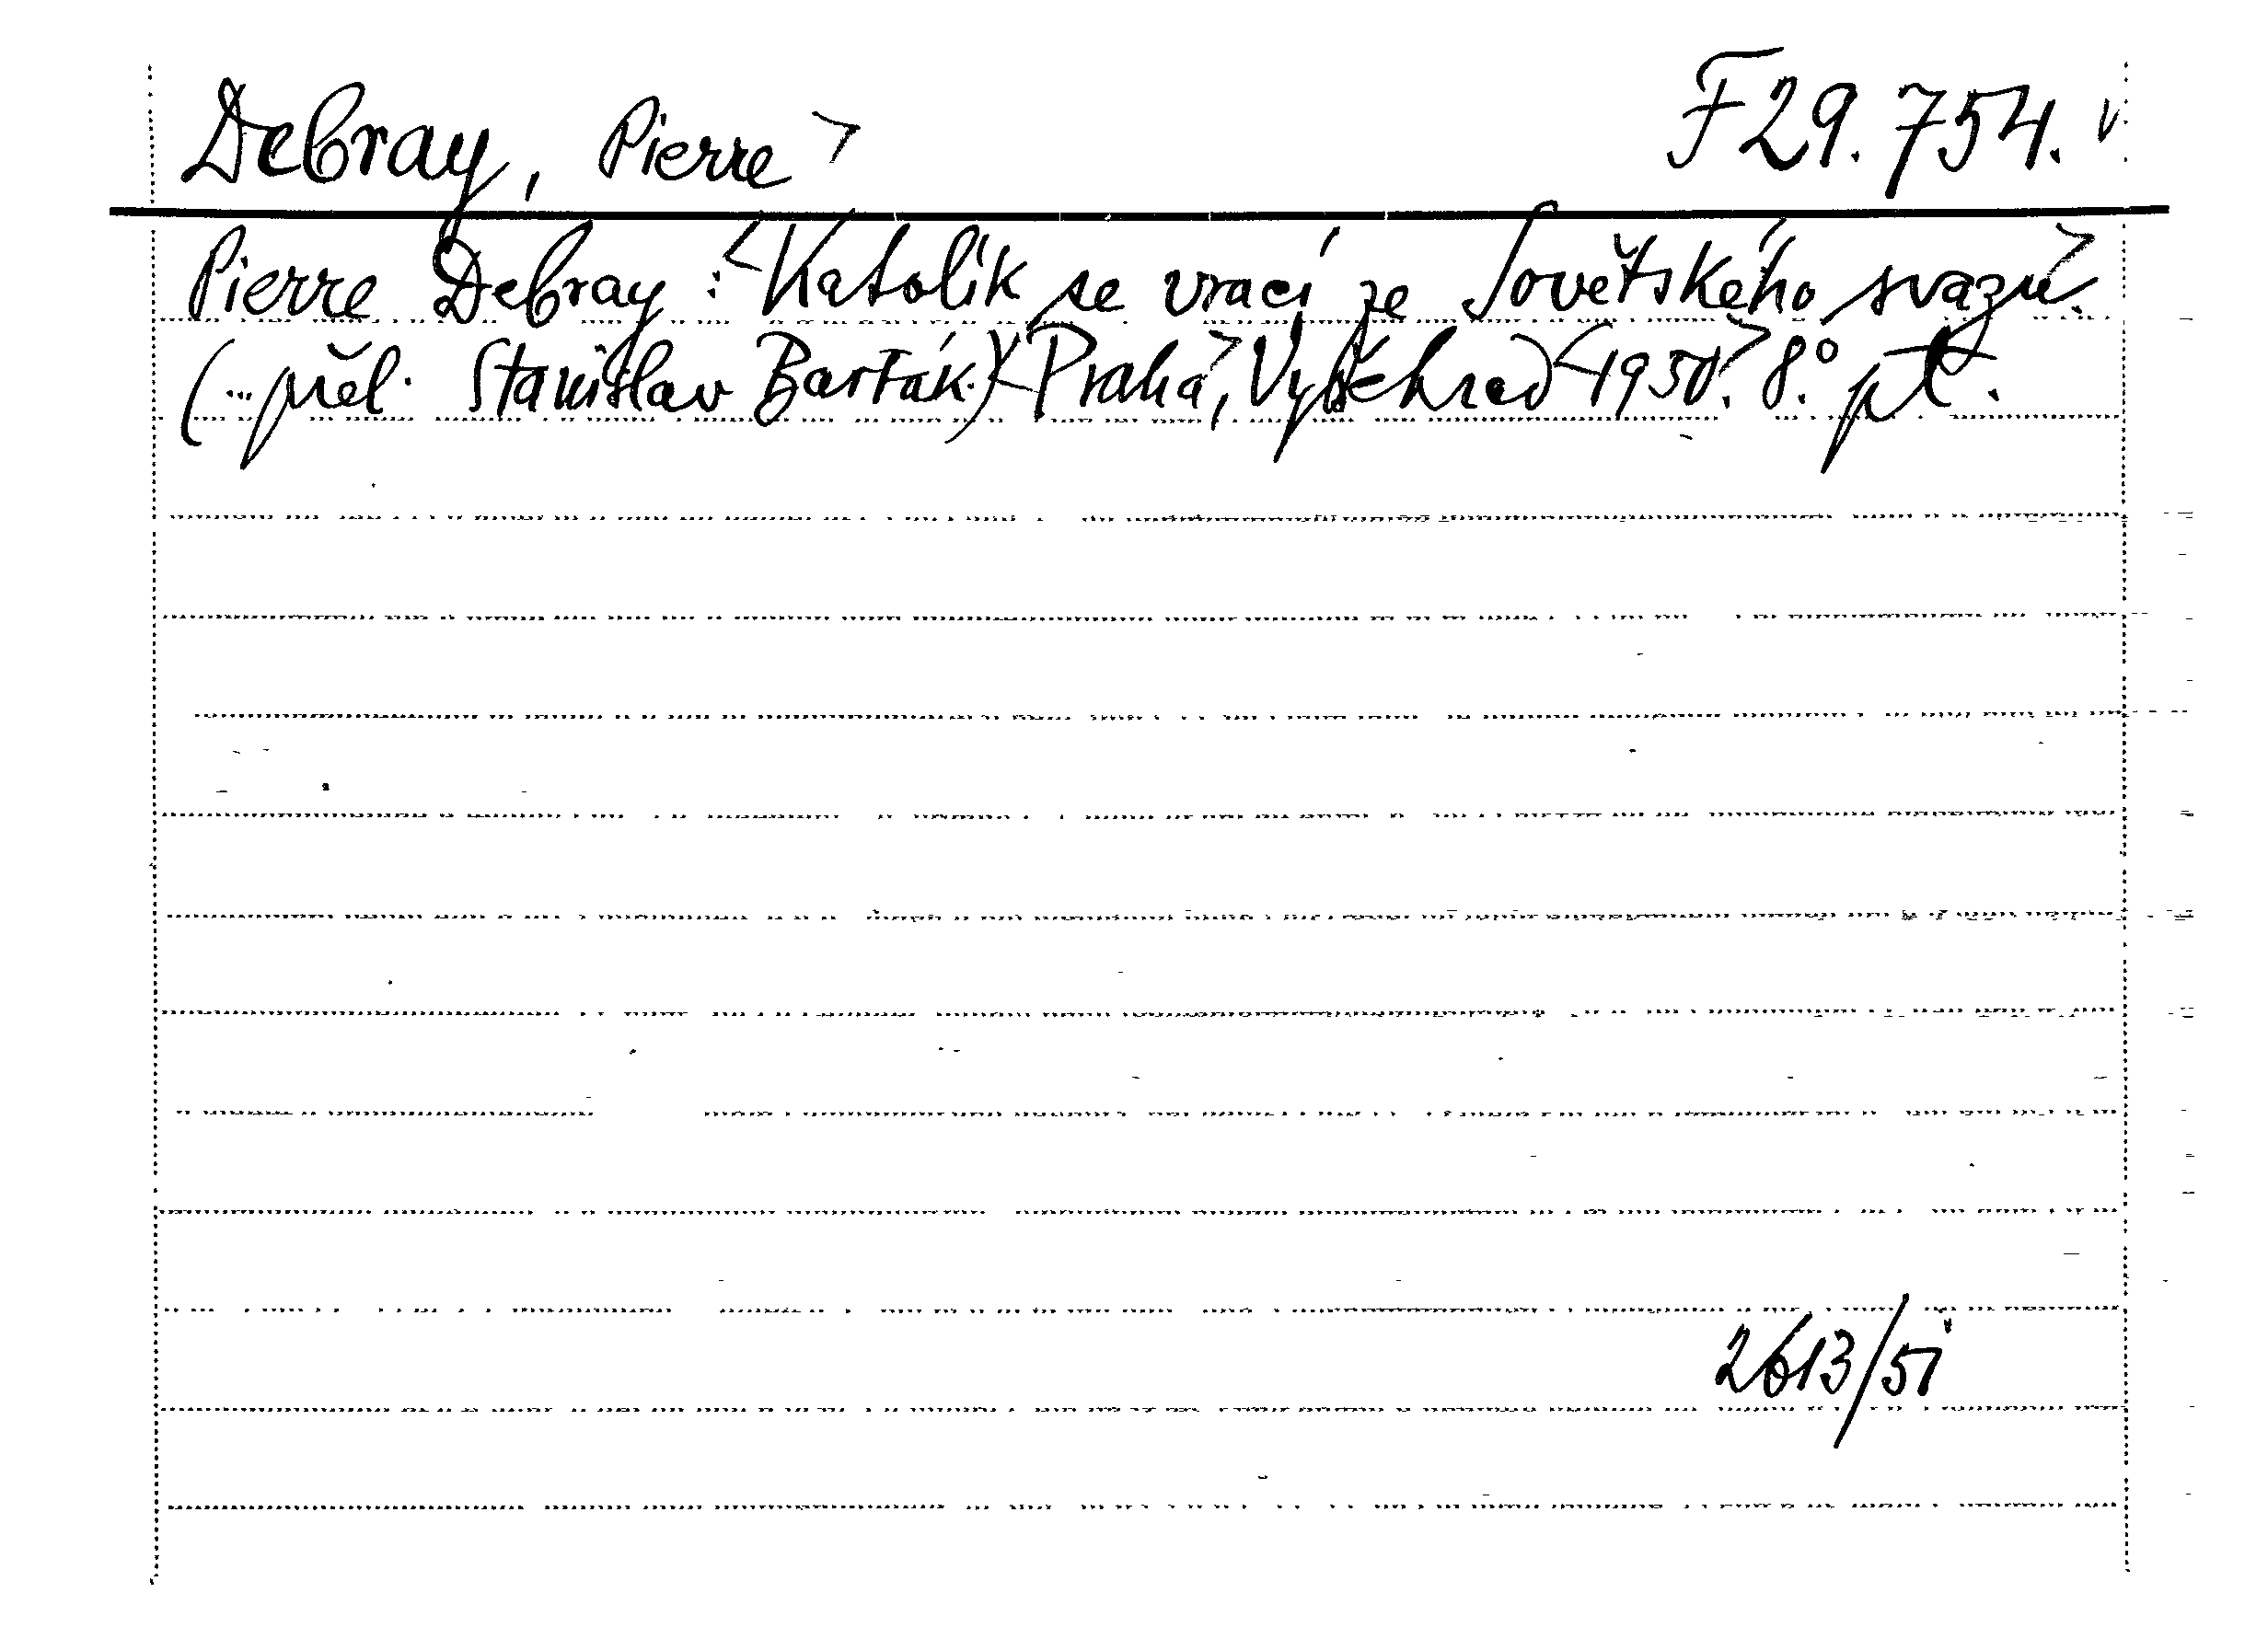 Debray, Pierre F 29.754.
Pierre Debray: Katolík se vrací ze Sovětského svazu.
(...přel. Stanislav Barták.) Praha, Vyšehrad 1950. 8°. pt.
2613/51